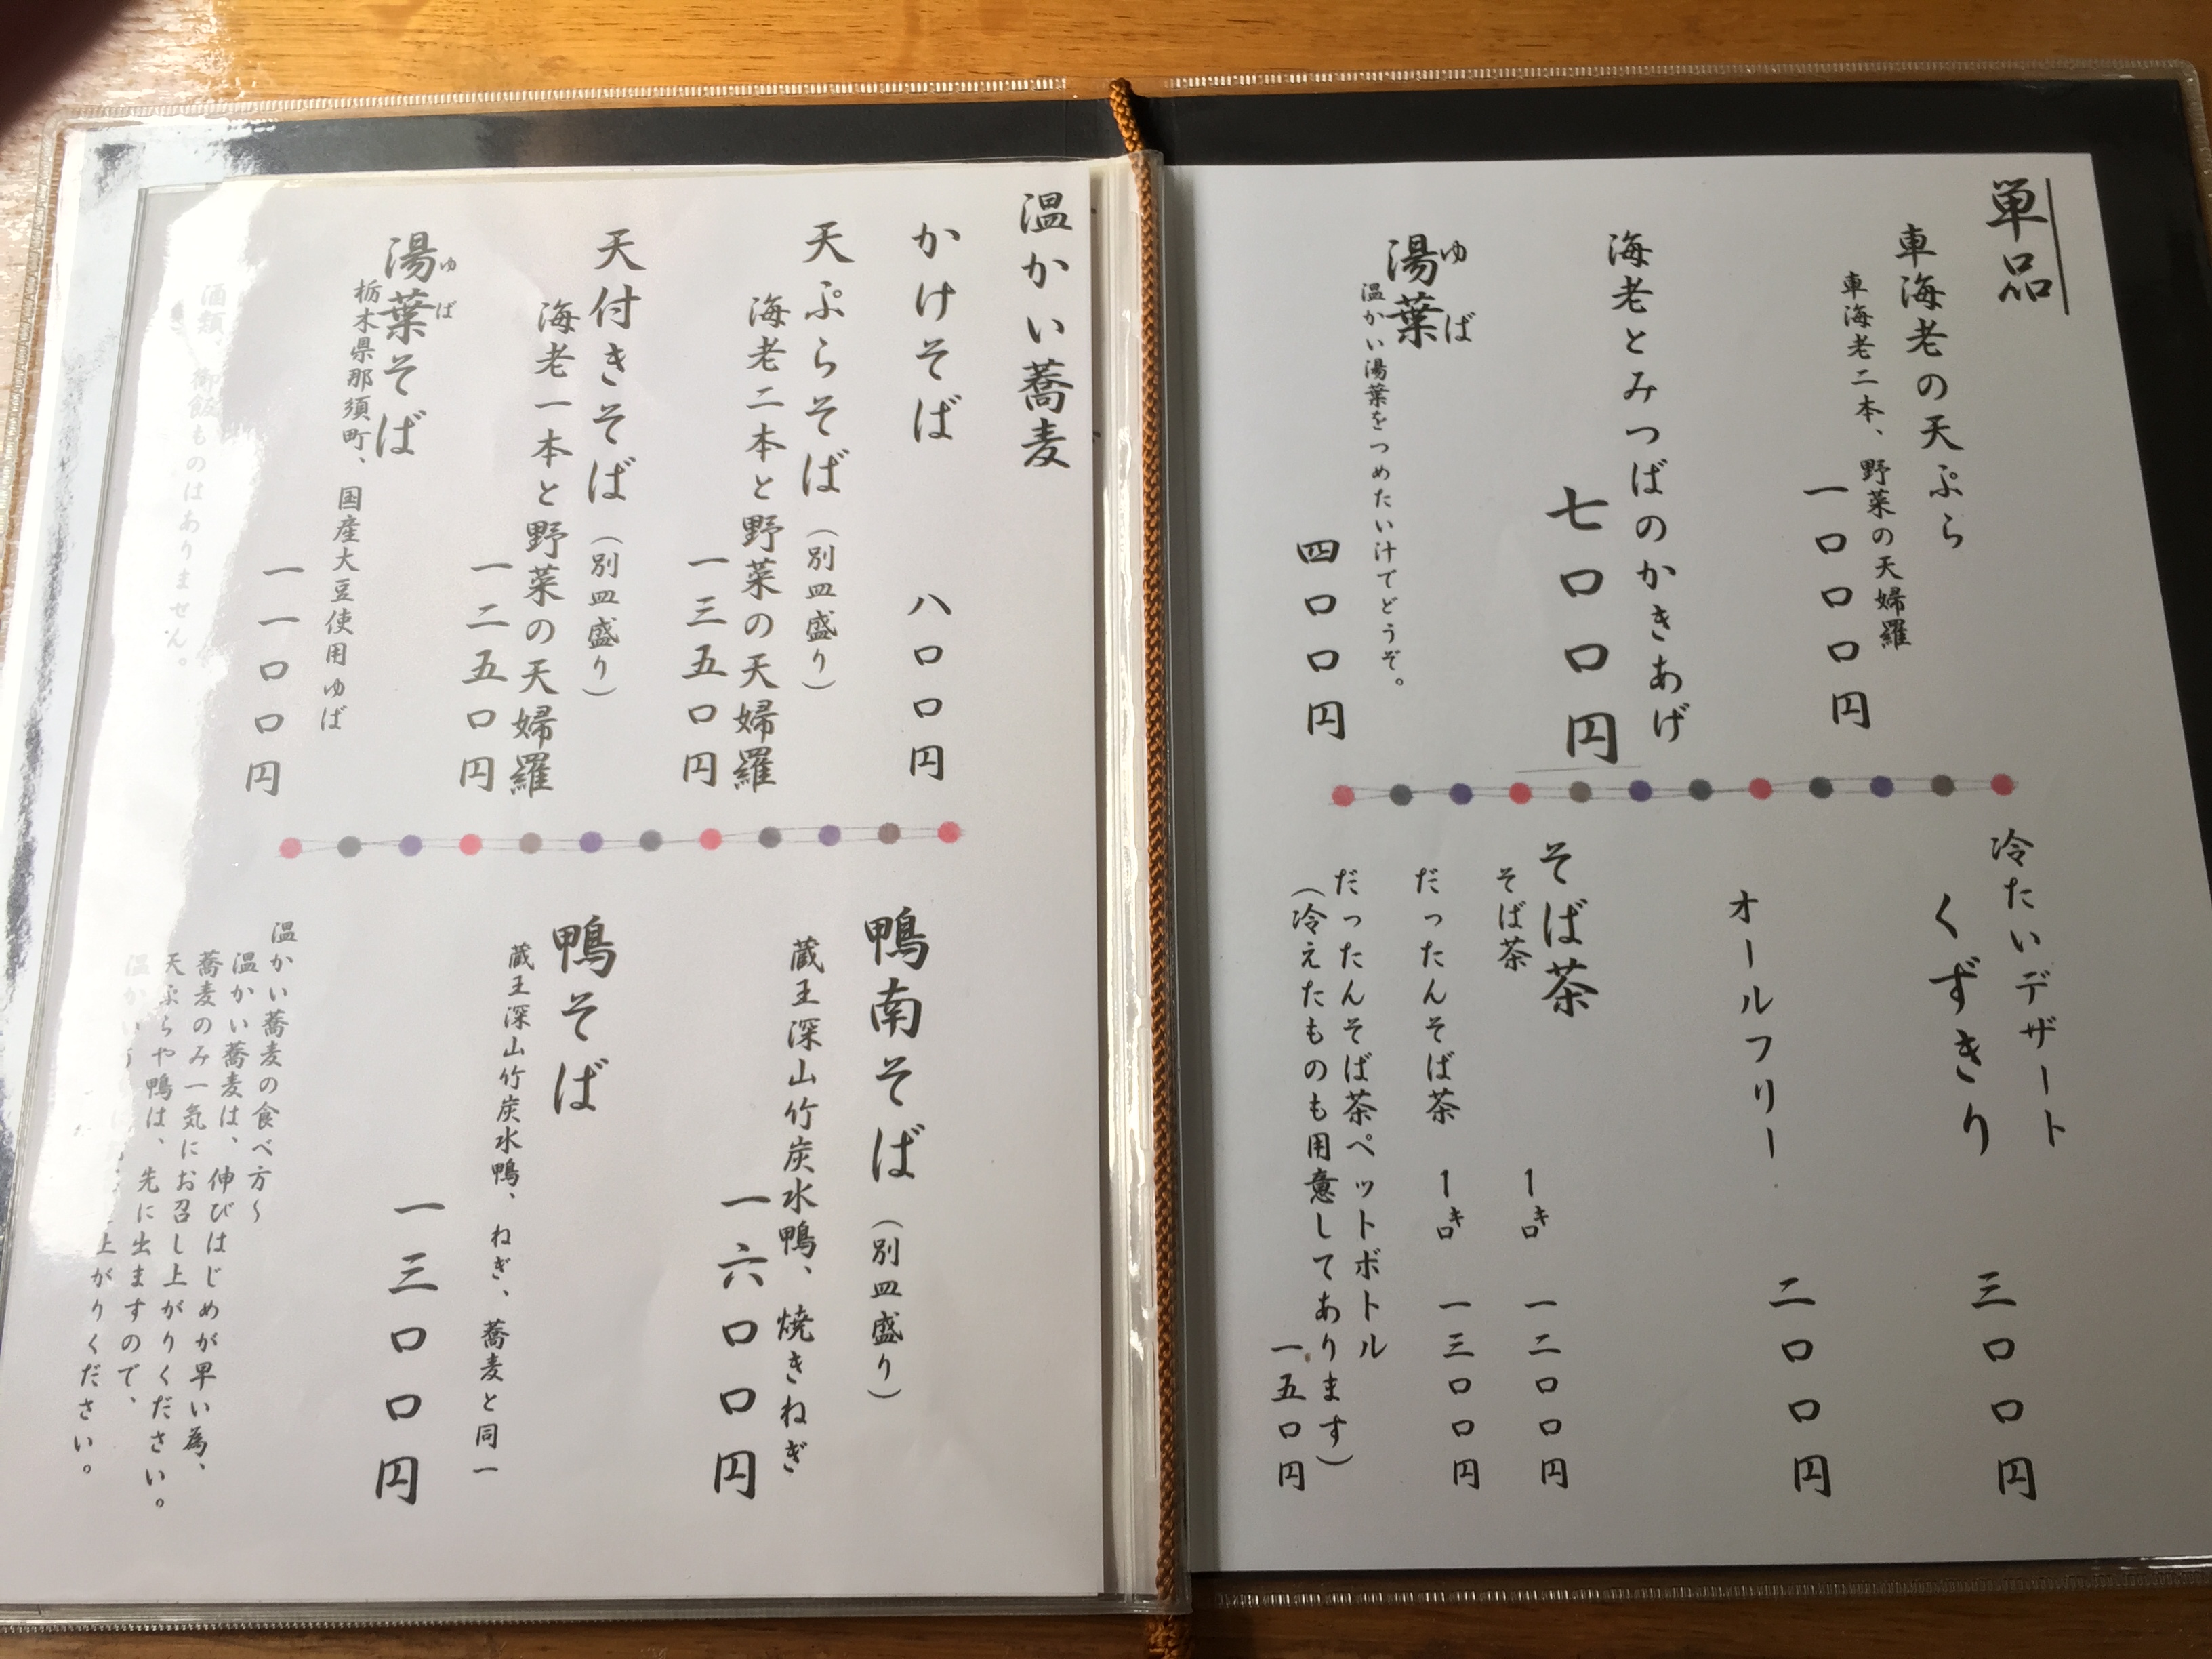 単品
車海老の天ぷら
車海老二本、野菜の天婦羅
一〇〇〇円
海老とみつばのかきあげ
七〇〇円
湯葉
ゆば
温かい湯葉をつめたい汁でどうぞ。
四〇〇円
冷たいデザート
くずきり
三〇〇円
オールフリー
二〇〇円
そば茶
そば茶 1キロ 一二〇〇円
だったんそば茶 1キロ 一三〇〇円
だったんそば茶ペットボトル
(冷えたものも用意してあります)
一五〇円
温かい蕎麦
かけそば 八〇〇円
天ぷらそば(別皿盛り)
海老二本と野菜の天婦羅
一三五〇円
天付きそば(別皿盛り)
海老一本と野菜の天婦羅
一二五〇円
湯葉そば
ゆば
栃木県那須町、国産大豆使用ゆば
一一〇〇円
酒類、御飯ものはありません。
鴨南そば(別皿盛り)
蔵王深山竹炭水鴨、焼きねぎ
一六〇〇円
鴨そば
蔵王深山竹炭水鴨、ねぎ、蕎麦と同一
一三〇〇円
温かい蕎麦の食べ方〜
温かい蕎麦は、伸びはじめが早い為、
蕎麦のみ一気にお召し上がりください。
天ぷらや鴨は、先に出ますので、
温かい 上がりください。